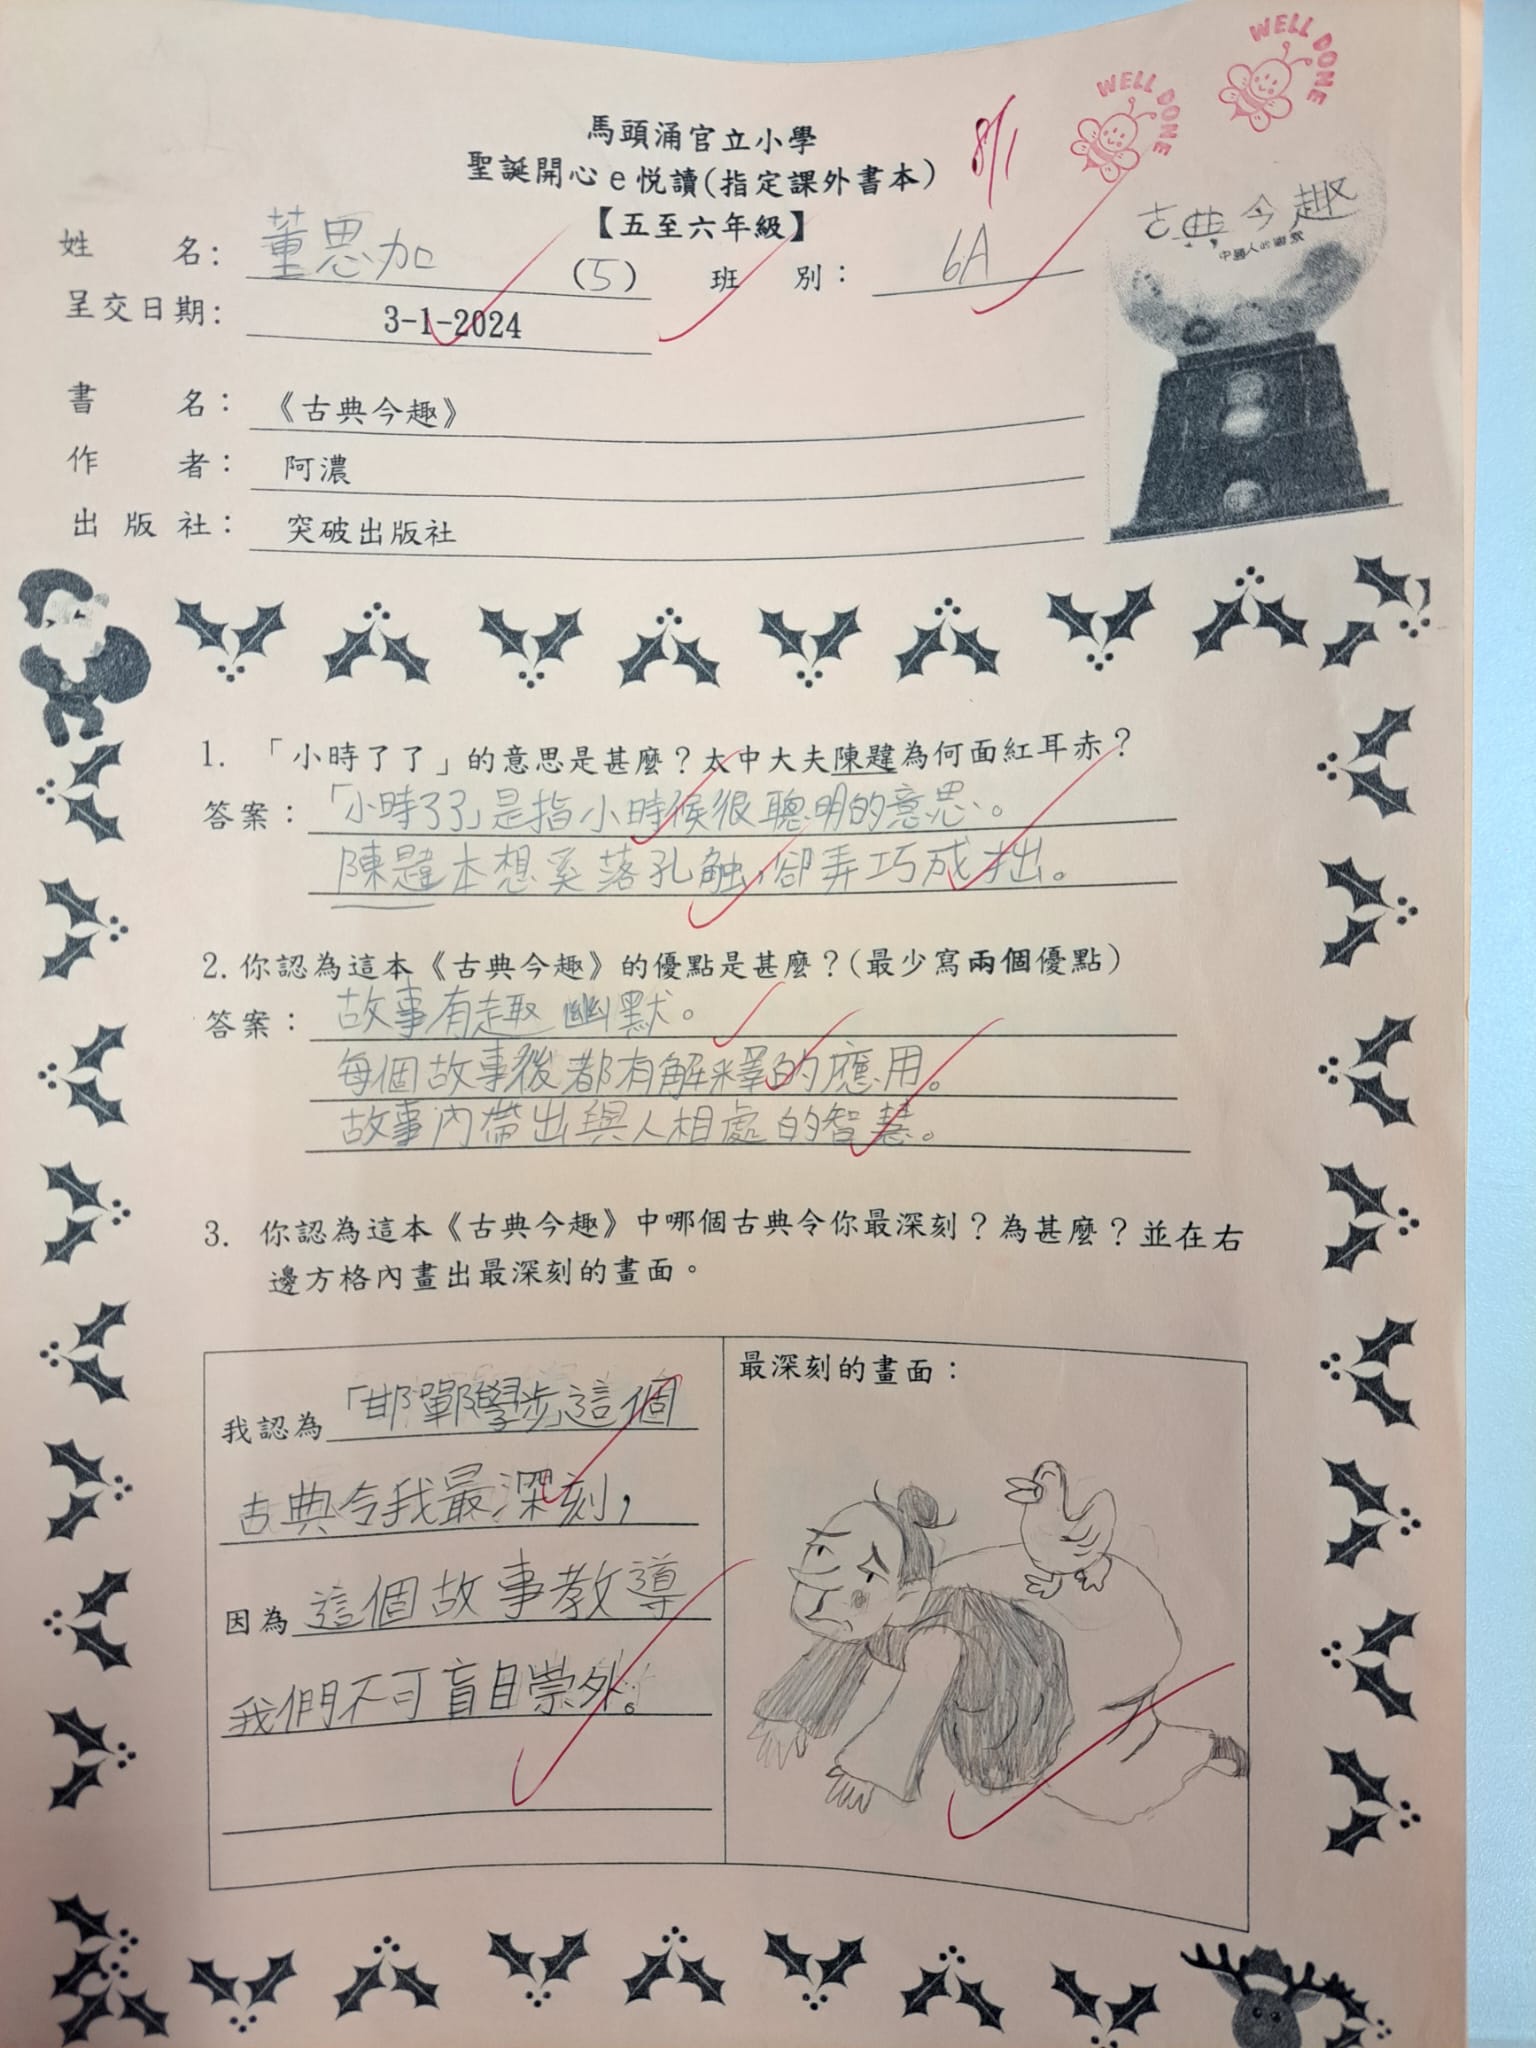 WELL DONE
WELL DONE
8/1
馬頭涌官立小學
聖誕開心e悅讀(指定課外書本)
【五至六年級】
姓名: 董思加 (5) 班別: 6A
呈交日期: 3-1-2024
古典今趣
中國人的幽默
書名: 《古典今趣》
作者: 阿濃
出版社: 突破出版社
1. 「小時了了」的意思是甚麼？太中大夫陳韙為何面紅耳赤？
答案: 「小時了了」是指小時候很聰明的意思。
陳韙本想奚落孔融,卻弄巧成拙。
2. 你認為這本《古典今趣》的優點是甚麼？(最少寫兩個優點)
答案: 故事有趣幽默。
每個故事後都有解釋的應用。
故事內帶出與人相處的智慧。
3. 你認為這本《古典今趣》中哪個古典令你最深刻？為甚麼？並在右
邊方格內畫出最深刻的畫面。
我認為「邯鄲學步」這個
古典令我最深刻,
因為這個故事教導
我們不可盲目崇外。
最深刻的畫面: